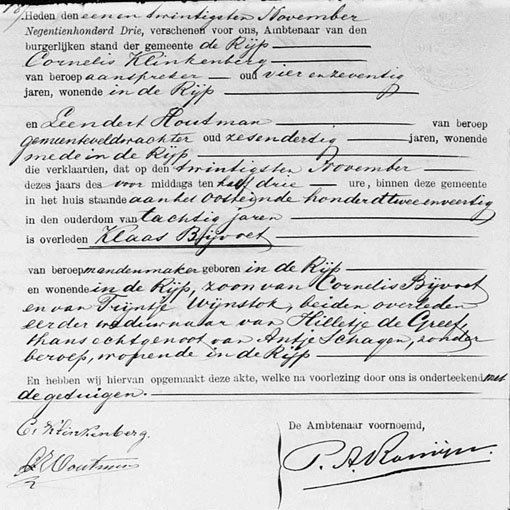 Heden den een en twintigsten November
Negentienhonderd Drie, verschenen voor ons, Ambtenaar van den
burgerlijken stand der gemeente de Rijp
Cornelis Klinkenberg
van beroep aanspreker oud vier en zeventig
jaren, wonende in de Rijp
en Leendert Houtman van beroep
gemeenteveldwachter oud zesendertig jaren, wonende
mede in de Rijp
die verklaarden, dat op den twintigsten November
dezes jaars des voor middags ten half drie ure, binnen deze gemeente
in het huis staande aan het Oosteinde honderd twee en veertig
in den ouderdom van tachtig jaren
is overleden Klaas Bijvoet
van beroep mandenmaker geboren in de Rijp
en wonende in de Rijp, zoon van Cornelis Bijvoet
en van Trijntje Wijnstok, beiden overleden
eerder weduwnaar van Hilletje de Greef,
thans echtgenoot van Antje Schagen, zonder
beroep, wonende in de Rijp
En hebben wij hiervan opgemaakt deze akte, welke na voorlezing door ons is onderteekend met
de getuigen.
De Ambtenaar voornoemd,
C. Klinkenberg.
L. Houtman
P. A. Romijn